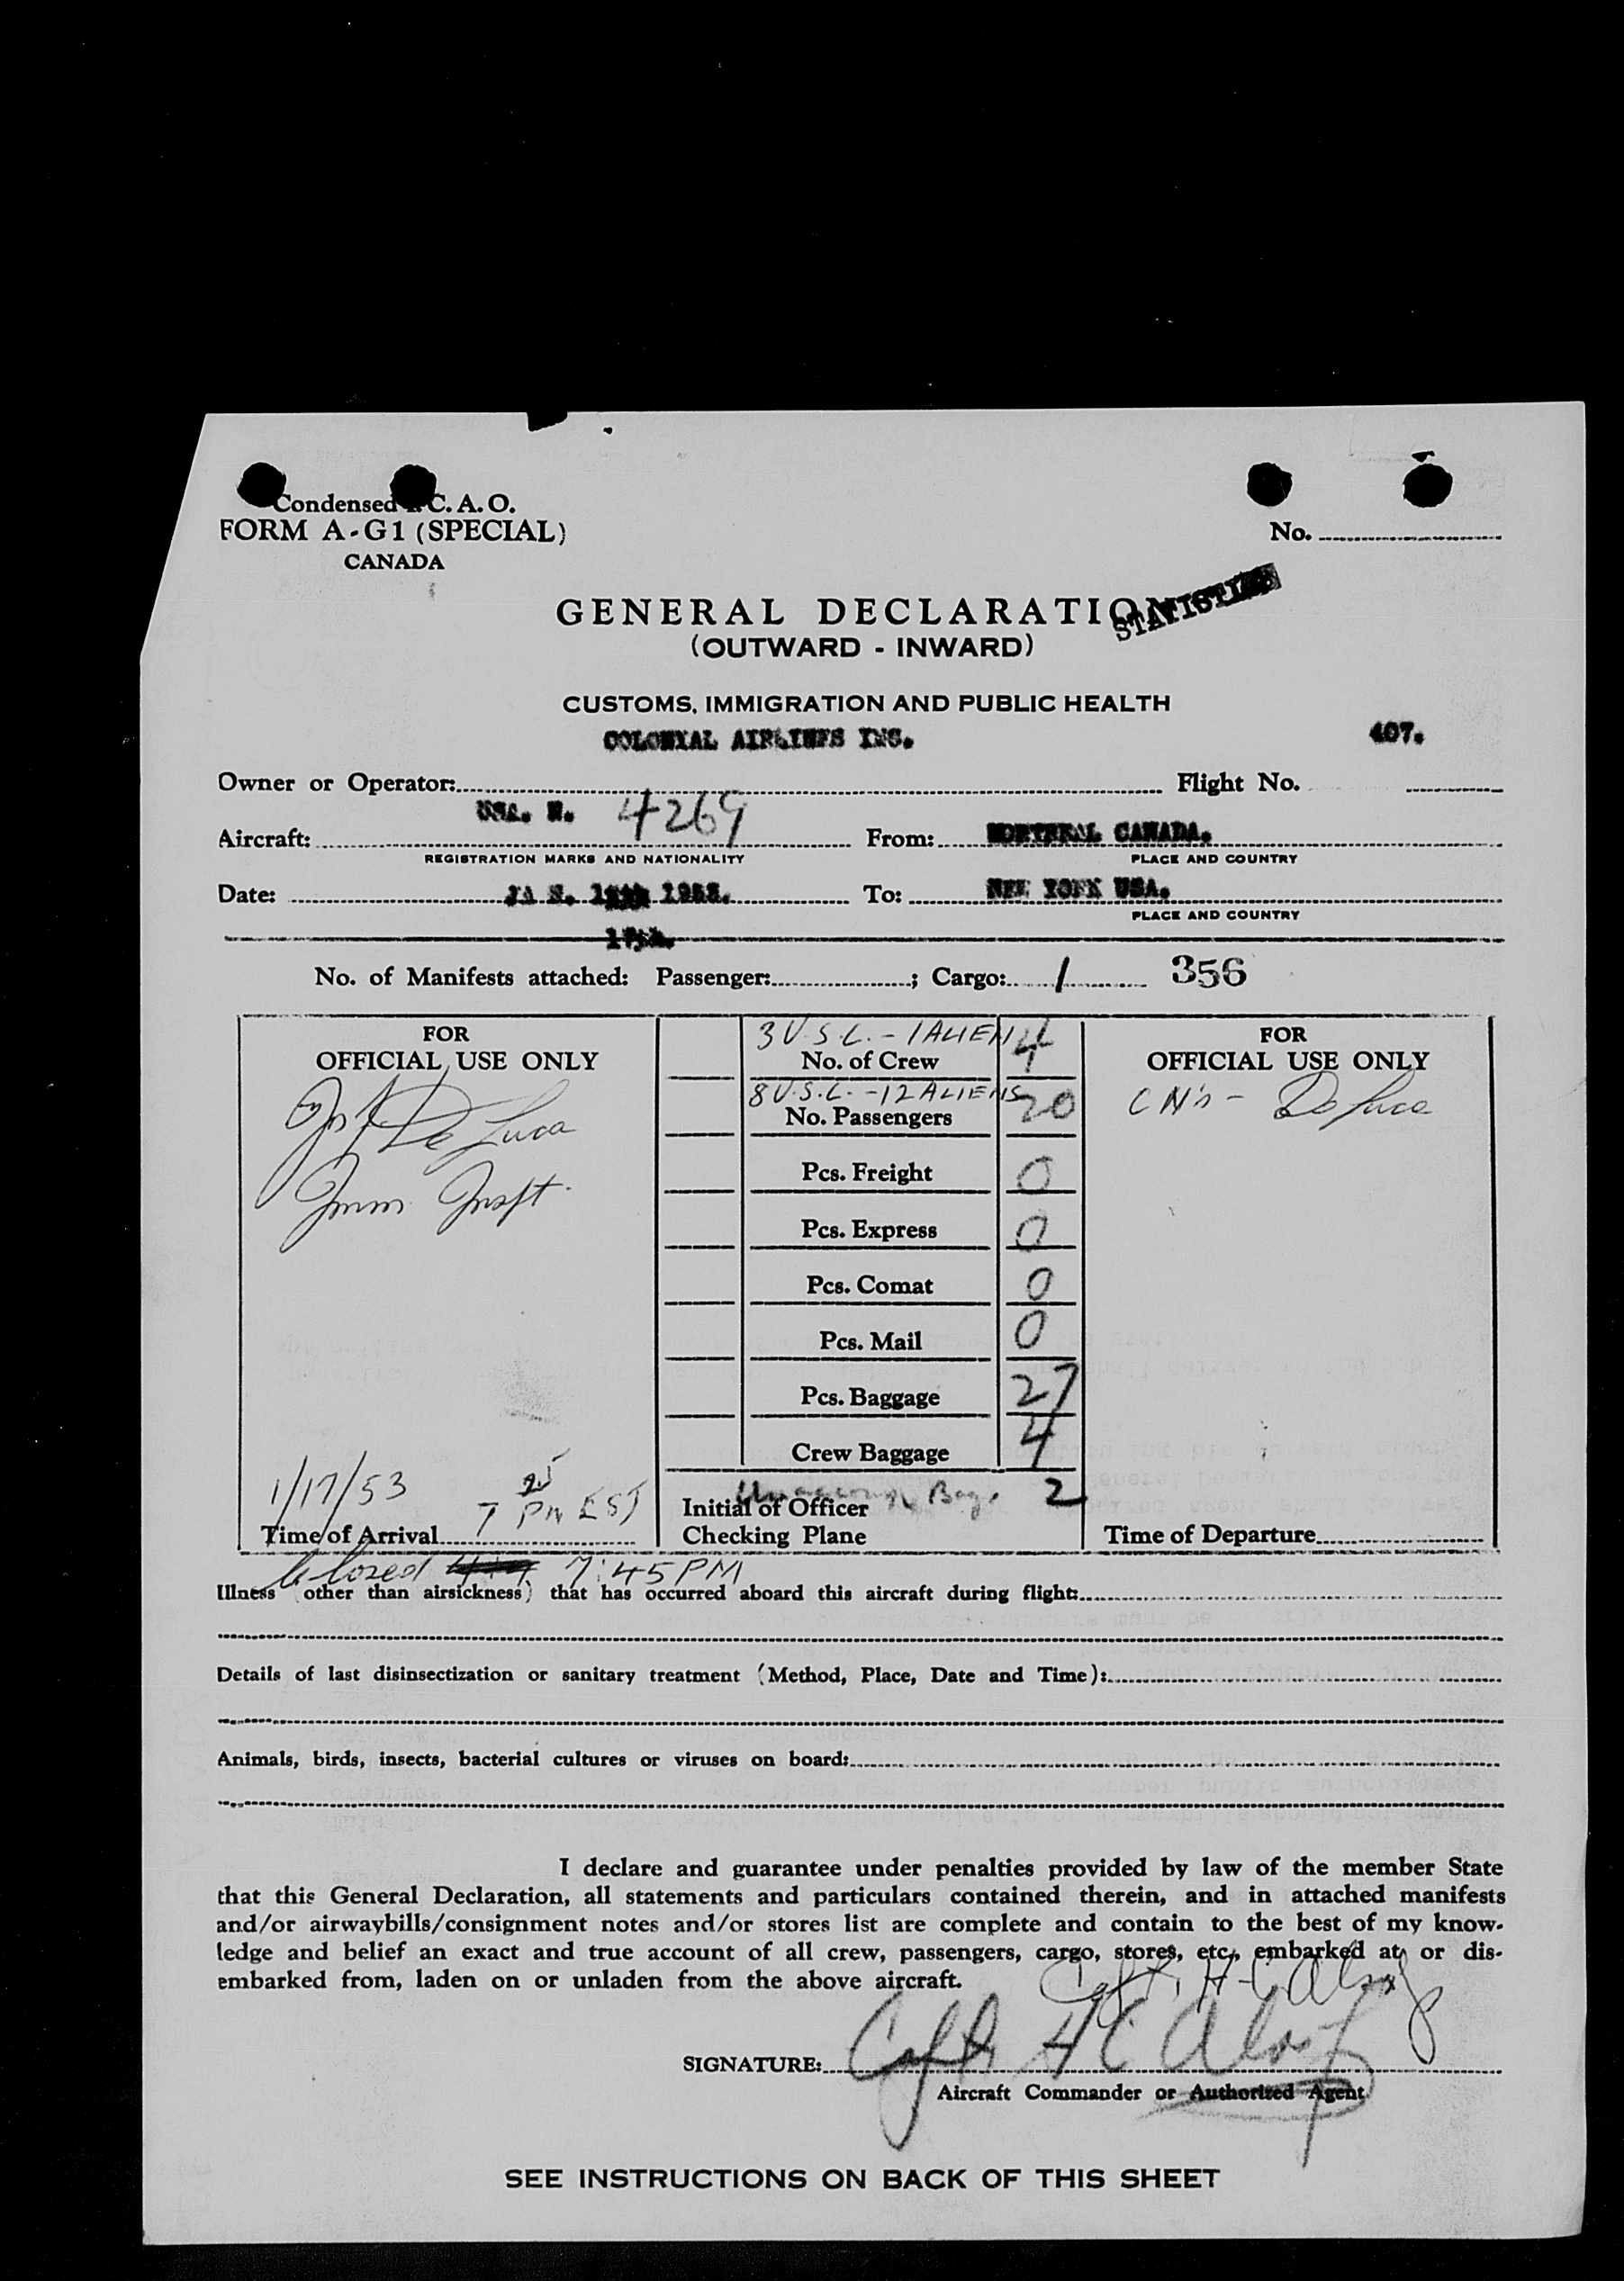 Condensed I. C. A. O.
FORM A-G1 (SPECIAL)
CANADA
No.
GENERAL DECLARATION
STATISTICS
(OUTWARD - INWARD)
CUSTOMS, IMMIGRATION AND PUBLIC HEALTH
COLONIAL AIRLINES INC. 407.
Owner or Operator: Flight No.
Aircraft: USA. N. 4269 From: MONTREAL CANADA.
REGISTRATION MARKS AND NATIONALITY PLACE AND COUNTRY
Date: JAN. 1953. To: NEW YORK USA.
PLACE AND COUNTRY
17th.
No. of Manifests attached: Passenger: ; Cargo: 1 356
FOR
OFFICIAL USE ONLY
De Luca
Imm Inspt.
1/17/53
7 25 PM EST
Time of Arrival
3 U.S.C. - 1 ALIEN 4
No. of Crew
8 U.S.C. - 12 ALIENS 20
No. Passengers
Pcs. Freight 0
Pcs. Express 0
Pcs. Comat 0
Pcs. Mail 0
Pcs. Baggage 27
Crew Baggage 4
Bag. 2
Initial of Officer
Checking Plane
FOR
OFFICIAL USE ONLY
CN's - De Luca
Time of Departure
Closed 7:45 PM
Illness (other than airsickness) that has occurred aboard this aircraft during flight:
Details of last disinsectization or sanitary treatment (Method, Place, Date and Time):
Animals, birds, insects, bacterial cultures or viruses on board:
I declare and guarantee under penalties provided by law of the member State
that this General Declaration, all statements and particulars contained therein, and in attached manifests
and/or airwaybills/consignment notes and/or stores list are complete and contain to the best of my know-
ledge and belief an exact and true account of all crew, passengers, cargo, stores, etc., embarked at, or dis-
embarked from, laden on or unladen from the above aircraft.
Capt. H C Alsop
SIGNATURE: Capt. H C Alsop
Aircraft Commander or Authorized Agent
SEE INSTRUCTIONS ON BACK OF THIS SHEET